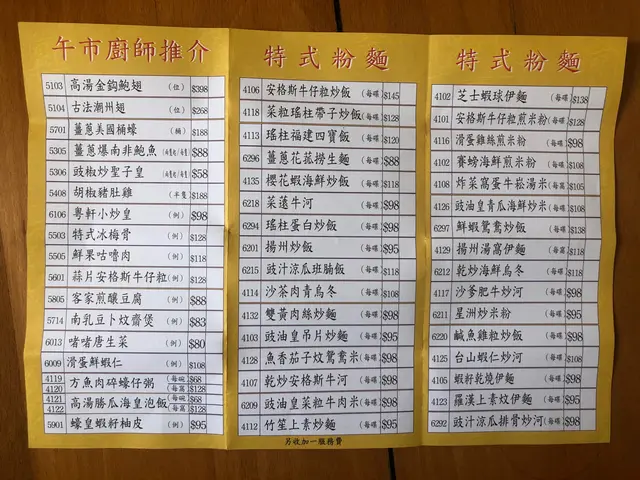 午市廚師推介
5103 高湯金鈎鮑翅 (位) $398
5104 古法潮州翅 (位) $268
5701 薑蔥美國桶蠔 (桶) $188
5305 薑蔥爆南非鮑魚 $88
5306 豉椒炒聖子皇 $58
5408 胡椒豬肚雞 (半隻) $188
6106 粵軒小炒皇 (例) $98
5503 特式冰梅骨 (例) $128
5505 鮮果咕嚕肉 (例) $118
5601 蒜片安格斯牛仔粒 (例) $128
5805 客家煎釀豆腐 (例) $88
5714 南乳豆卜炆齋煲 (例) $83
6013 啫啫唐生菜 (例) $80
6009 滑蛋鮮蝦仁 (例) $108
4119 方魚肉碎蠔仔粥 (每碗) $68
4120 (每窩) $128
4121 高湯勝瓜海皇泡飯 (每碗) $68
4122 (每窩) $128
5901 蠔皇蝦籽柚皮 (例) $95
特式粉麵
4106 安格斯牛仔粒炒飯 (每碟) $145
4118 菜粒瑤柱帶子炒飯 (每碟) $128
4113 瑤柱福建四寶飯 (每碟) $120
6296 薑蔥花菰撈生麵 (每碟) $88
4135 櫻花蝦海鮮炒飯 (每碟) $118
6218 菜薳牛河 (每碟) $98
6294 瑤柱蛋白炒飯 (每碟) $98
6201 揚州炒飯 (每碟) $95
6215 豉汁涼瓜班腩飯 (每碟) $118
4114 沙茶肉青烏冬 (每碟) $108
4132 雙黃肉絲炒麵 (每碟) $98
4103 豉油皇吊片炒麵 (每碟) $95
4128 魚香茄子炆鴛鴦米 (每碟) $98
4107 乾炒安格斯牛河 (每碟) $98
6209 豉油皇菜粒牛肉米 (每碟) $98
4112 竹笙上素炒麵 (每碟) $95
另收加一服務費
特式粉麵
4102 芝士蝦球伊麵 (每碟) $138
4101 安格斯牛仔煎米粉 (每碟) $128
4116 滑蛋雞絲煎米粉 (每碟) $98
4102 賽螃海鮮煎米粉 (每碟) $108
4108 炸菜窩蛋牛崧湯米 (每窩) $105
4126 豉油皇青瓜海鮮炒米 (每碟) $108
6297 鮮蝦鴛鴦炒飯 (每碟) $138
4129 揚州湯窩伊麵 (每窩) $118
6212 乾炒海鮮烏冬 (每碟) $118
4117 沙爹肥牛炒河 (每碟) $98
6211 星洲炒米粉 (每碟) $95
6220 鹹魚雞粒炒飯 (每碟) $98
4125 台山蝦仁炒河 (每碟) $108
4105 蝦籽乾燒伊麵 (每碟) $98
4123 羅漢上素炆伊麵 (每碟) $95
6292 豉汁涼瓜排骨炒河 (每碟) $98